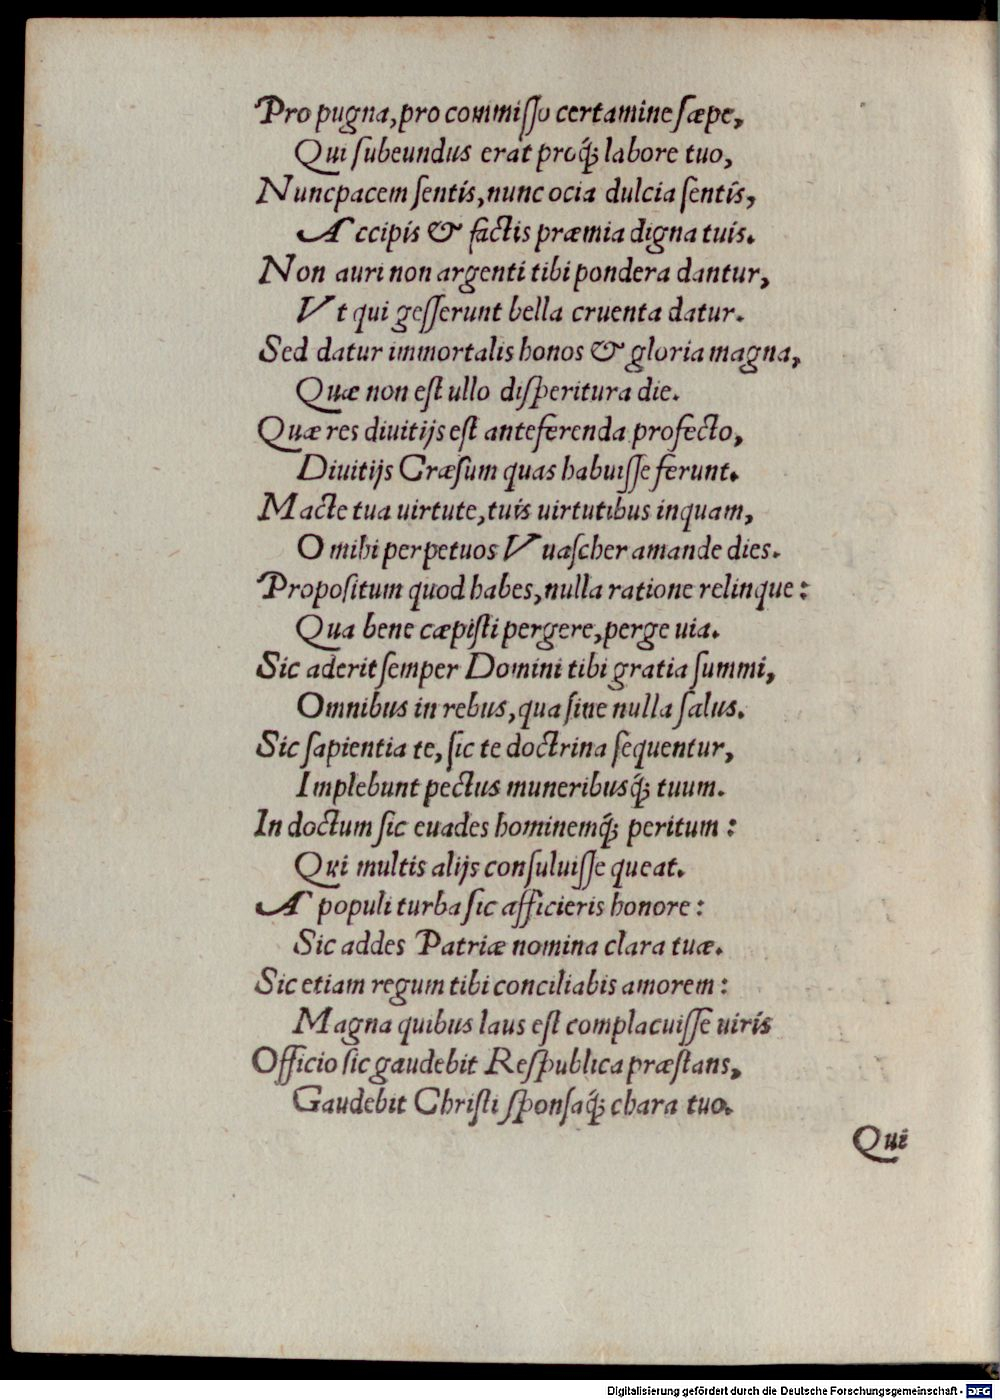 Pro pugna, pro commiſſo certamine ſæpe,
Qui ſubeundus erat proq́; labore tuo,
Nunc pacem ſentis, nunc ocia dulcia ſentis,
Accipis & factis præmia digna tuis.
Non auri non argenti tibi pondera dantur,
Vt qui geſſerunt bella cruenta datur.
Sed datur immortalis honos & gloria magna,
Quæ non eſt ullo diſperitura die.
Quæ res diuitijs eſt anteferenda profecto,
Diuitijs Cræſum quas habuiſſe ferunt.
Macte tua uirtute, tuis uirtutibus inquam,
O mihi perpetuos Vuaſcher amande dies.
Propoſitum quod habes, nulla ratione relinque:
Qua bene cæpiſti pergere, perge uia.
Sic aderit ſemper Domini tibi gratia ſummi,
Omnibus in rebus, qua ſine nulla ſalus.
Sic ſapientia te, ſic te doctrina ſequentur,
Implebunt pectus muneribusq́; tuum.
In doctum ſic euades hominemq́; peritum:
Qui multis alijs conſuluiſſe queat.
A populi turba ſic afficieris honore:
Sic addes Patriæ nomina clara tuæ.
Sic etiam regum tibi conciliabis amorem:
Magna quibus laus eſt complacuiſſe uiris
Officio ſic gaudebit Reſpublica præſtans,
Gaudebit Chriſti ſponſaq́; chara tuo.
Qui
Digitalisierung gefördert durch die Deutsche Forschungsgemeinschaft - DFG